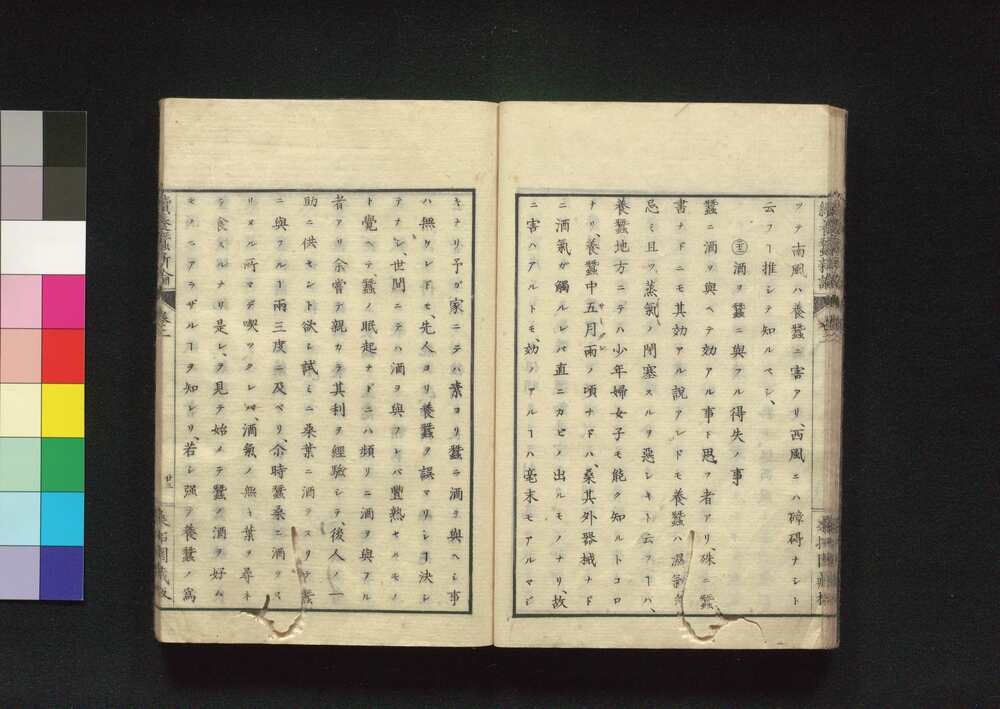 ツテ南風ハ養蠶ニ害アリ、西風ニハ障碍ナシト
云フヿ推シテ知ルベシ、
酒ヲ蠶ニ與フル得失ノ事
蠶ニ酒ヲ與ヘテ効アル事ト思フ者アリ、殊ニ蠶
書ナドニモ其効アル說アレドモ養蠶ハ濕氣ヲ
忌ミ且ツ蒸氣ノ閉塞スルヲ惡シキト云フヿハ、
養蠶地方ニテハ少年婦女子モ能ク知ルトコロ
ナリ、養蠶中五月雨ノ頃ナドハ、桑其外器械ナド
ニ酒氣ガ觸ルレバ直ニカビノ出ルモノナリ、故
ニ害ハアルトモ、効ノアルヿハ毫末モアルマジ
キナリ予ガ家ニテハ素ヨリ蠶ニ酒ヲ與ヘシ事
ハ無ケレドモ、先人ヨリ養蠶ヲ誤マリシヿ決シ
テナシ、世間ニテハ酒ヲ與フレバ豐熟セルモノ
ト覺ヘテ、蠶ノ眠起ナドニハ頻リニ酒ヲ與フル
者アリ余嘗テ親カラ其利ヲ經驗シテ、後人ノ一
助ニ供セント欲シ試ミニ桑葉ニ酒ヲスリテ蠶
ニ與フルヿ兩三度ニ及ベリ、尒時蠶桑ニ酒ヲス
リヌル所マデ喫ツクレバ、酒氣ノ無キ葉ヲ尋ネ
テ食スルナリ是レヲ見テ始メテ蠶ノ酒ヲ好ム
モノニアラザルヿヲ知レリ、若シ强テ養蠶ノ爲
續養蠶新論
卷二
廿三